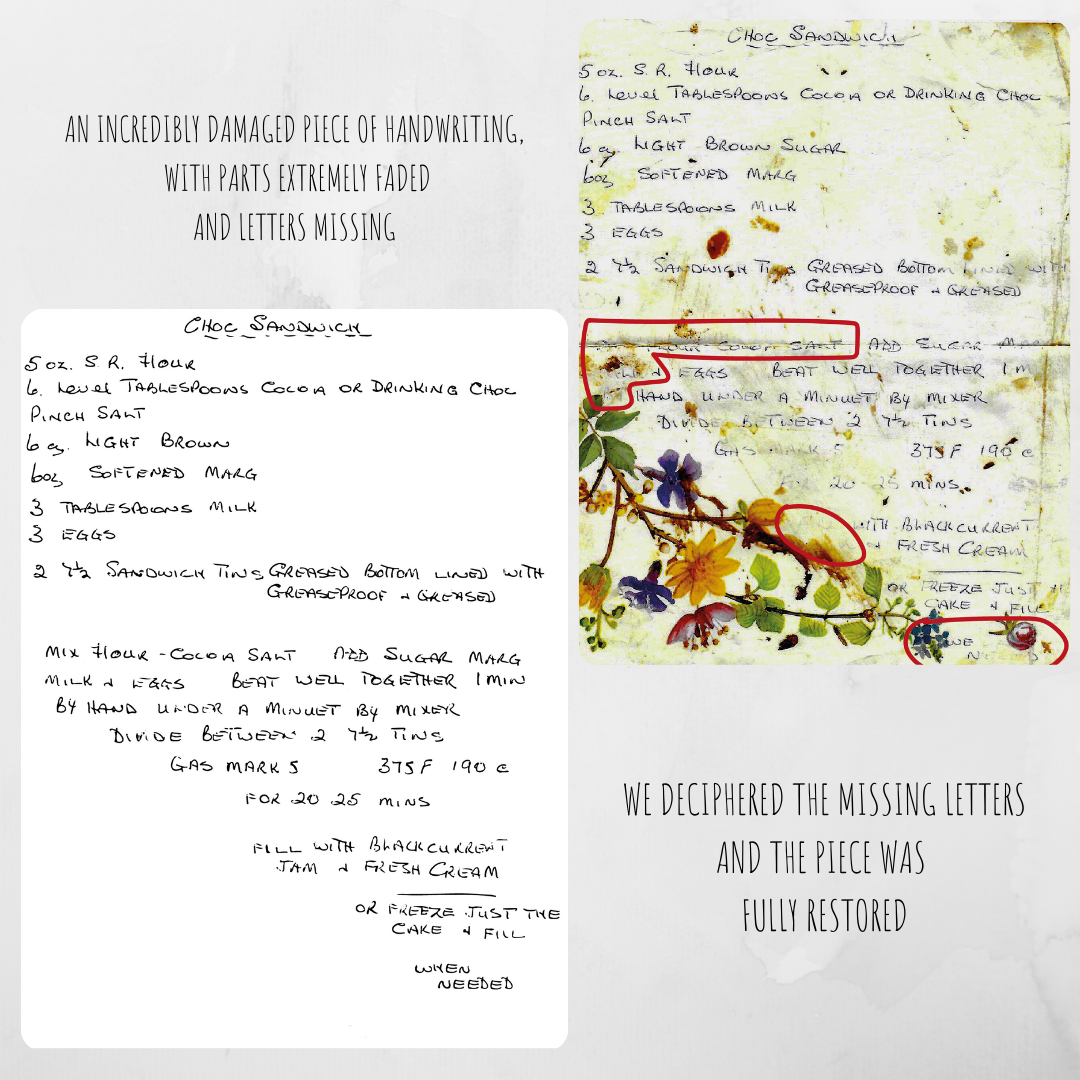 AN INCREDIBLY DAMAGED PIECE OF HANDWRITING,
WITH PARTS EXTREMELY FADED
AND LETTERS MISSING
CHOC SANDWICH
5 oz. S. R. FLOUR
6. LEVEL TABLESPOONS COCOA OR DRINKING CHOC
PINCH SALT
6 oz. LIGHT BROWN SUGAR
6oz SOFTENED MARG
3 TABLESPOONS MILK
3 EGGS
2 7½ SANDWICH TINS GREASED BOTTOM LINED WITH
GREASEPROOF & GREASED
FLOUR COCOA SALT ADD SUGAR MA
& EGGS BEAT WELL TOGETHER 1 M
HAND UNDER A MINUET BY MIXER
DIVIDE BETWEEN 2 7½ TINS
GAS MARK 5 375F 190 c
FOR 20 25 MINS
WITH BLACKCURRENT
& FRESH CREAM
OR FREEZE JUST
CAKE & FILL
CHOC SANDWICH
5 oz. S. R. FLOUR
6. LEVEL TABLESPOONS COCOA OR DRINKING CHOC
PINCH SALT
6 oz. LIGHT BROWN
6oz SOFTENED MARG
3 TABLESPOONS MILK
3 EGGS
2 7½ SANDWICH TINS GREASED BOTTOM LINED WITH
GREASEPROOF & GREASED
MIX FLOUR - COCOA SALT ADD SUGAR MARG
MILK & EGGS BEAT WELL TOGETHER 1 MIN
BY HAND UNDER A MINUET BY MIXER
DIVIDE BETWEEN 2 7½ TINS
GAS MARK 5 375F 190 c
FOR 20 25 MINS
FILL WITH BLACKCURRENT
JAM & FRESH CREAM
OR FREEZE JUST THE
CAKE & FILL
WHEN
NEEDED
WE DECIPHERED THE MISSING LETTERS
AND THE PIECE WAS
FULLY RESTORED